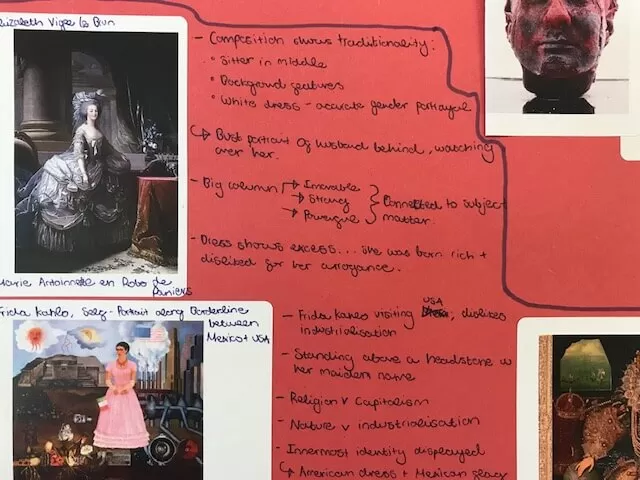 Elizabeth Vigee le Brun
- Composition shows traditionality:
• Sitter in middle
• Background features
• White dress - accurate gender portrayal
↳ Bust portrait of husband behind, watching
over her.
- Big column → Immovable
→ Strong
→ Powerful
} Connected to subject
matter.
- Dress shows excess... She was born rich +
disliked for her arrogance.
Marie Antoinette en Robe de
Paniers
Frida Kahlo, Self-Portrait along Borderline
between
Mexico + USA
- Frida Kahlo visiting USA, dislikes
industrialisation
- Standing above a headstone w
her maiden name
- Religion V Capitalism
- Nature v industrialisation
- Innermost identity displayed
↳ American dress + Mexican